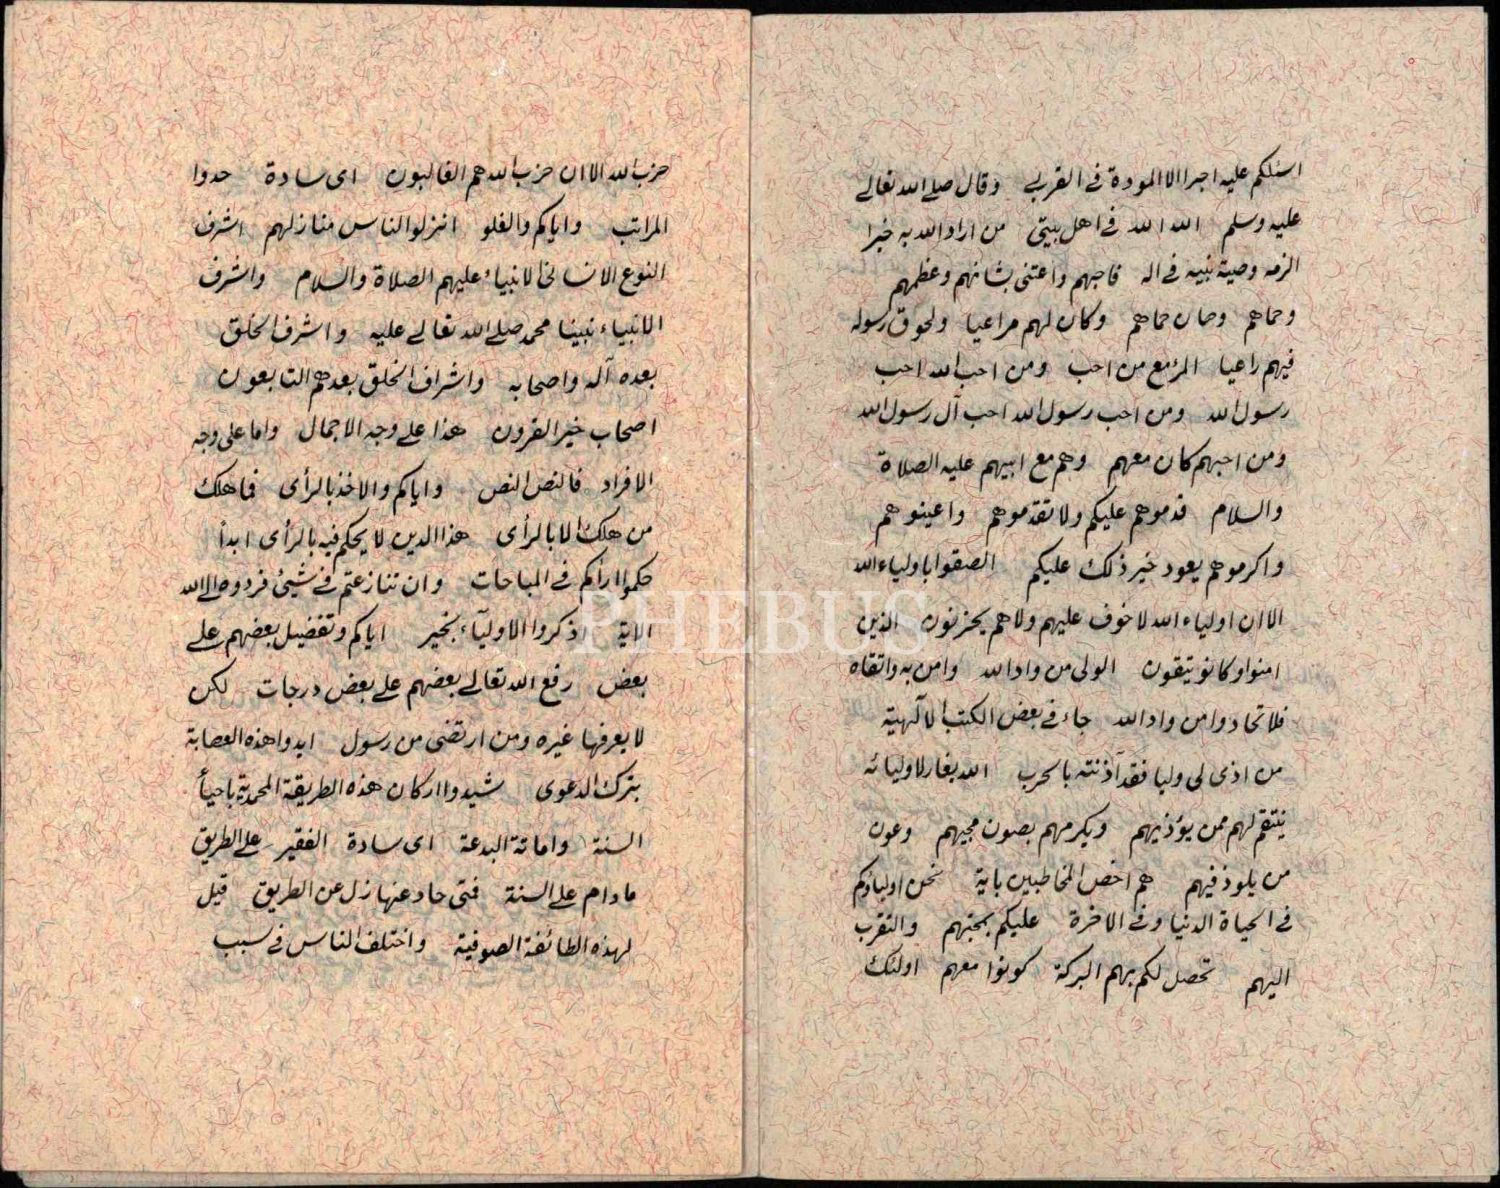 اسئلكم عليه اجرا الا المودة فى القربى وقال صلى الله تعالى
عليه وسلم الله الله فى اهل بيتى من اراد الله به خيرا
الزمه وصية نبيه فى اله فاحبهم واعتنى بشانهم وعظمهم
وحماهم وصان حماهم وكان لهم مراعيا ولحقوق رسوله
فيهم راعيا المرء مع من احب ومن احب الله احب
رسول الله ومن احب رسول الله احب آل رسول الله
ومن احبهم كان معهم وهم مع ابيهم عليه الصلاة
والسلام قدموهم عليكم ولا تقدموهم واعينوهم
واكرموهم يعود خير ذلك عليكم الصقوا باولياء الله
الا ان اولياء الله لا خوف عليهم ولا هم يحزنون الذين
امنوا وكانو يتقون الولى من واد الله وامن به واتقاه
فلا تحادوا من واد الله جاء فى بعض الكتب الآلهية
من اذى لى وليا فقد آذنته بالحرب الله يغار لاوليائه
ينتقم لهم ممن يؤذيهم ويكرمهم بصون محبهم وعون
من يلوذ فيهم هم اخص المخاطبين باية نحن اولياؤكم
فى الحياة الدنيا وفى الاخرة عليكم بمحبتهم والتقرب
اليهم تحصل لكم بهم البركة كونوا معهم اولئك
حزب الله الا ان حزب الله هم الغالبون اى سادة حدوا
المراتب واياكم والغلو انزلوا الناس منازلهم اشرف
النوع الانسانى الانبياء عليهم الصلاة والسلام واشرف
الانبياء نبينا محمد صلى الله تعالى عليه واشرف الخلق
بعده آله واصحابه واشراف الخلق بعدهم التابعون
اصحاب خير القرون هذا على وجه الاجمال واما على وجه
الافراد فالنص النص واياكم والاخذ بالرأى فما هلك
من هلك الا بالرأى هذا الدين لا يحكم فيه بالرأى ابدأ
حكموا ارأكم فى المباحات وان تنازعتم فى شيئ فردوه الى الله
الاية اذكروا الاوليآء بخير اياكم وتفضيل بعضهم على
بعض رفع الله تعالى بعضهم على بعض درجات لكن
لا يعرفها غيره ومن ارتضى من رسول ايدوا هذه العصابة
بترك الدعوى شيدوا اركان هذه الطريقة المحمدية باحيأ
السنة واماتة البدعة اى سادة الفقير على الطريق
مادام على السنة فمتى حاد عنها زل عن الطريق قيل
لهذه الطائفة الصوفية واختلف الناس فى سبب
PHEBUS